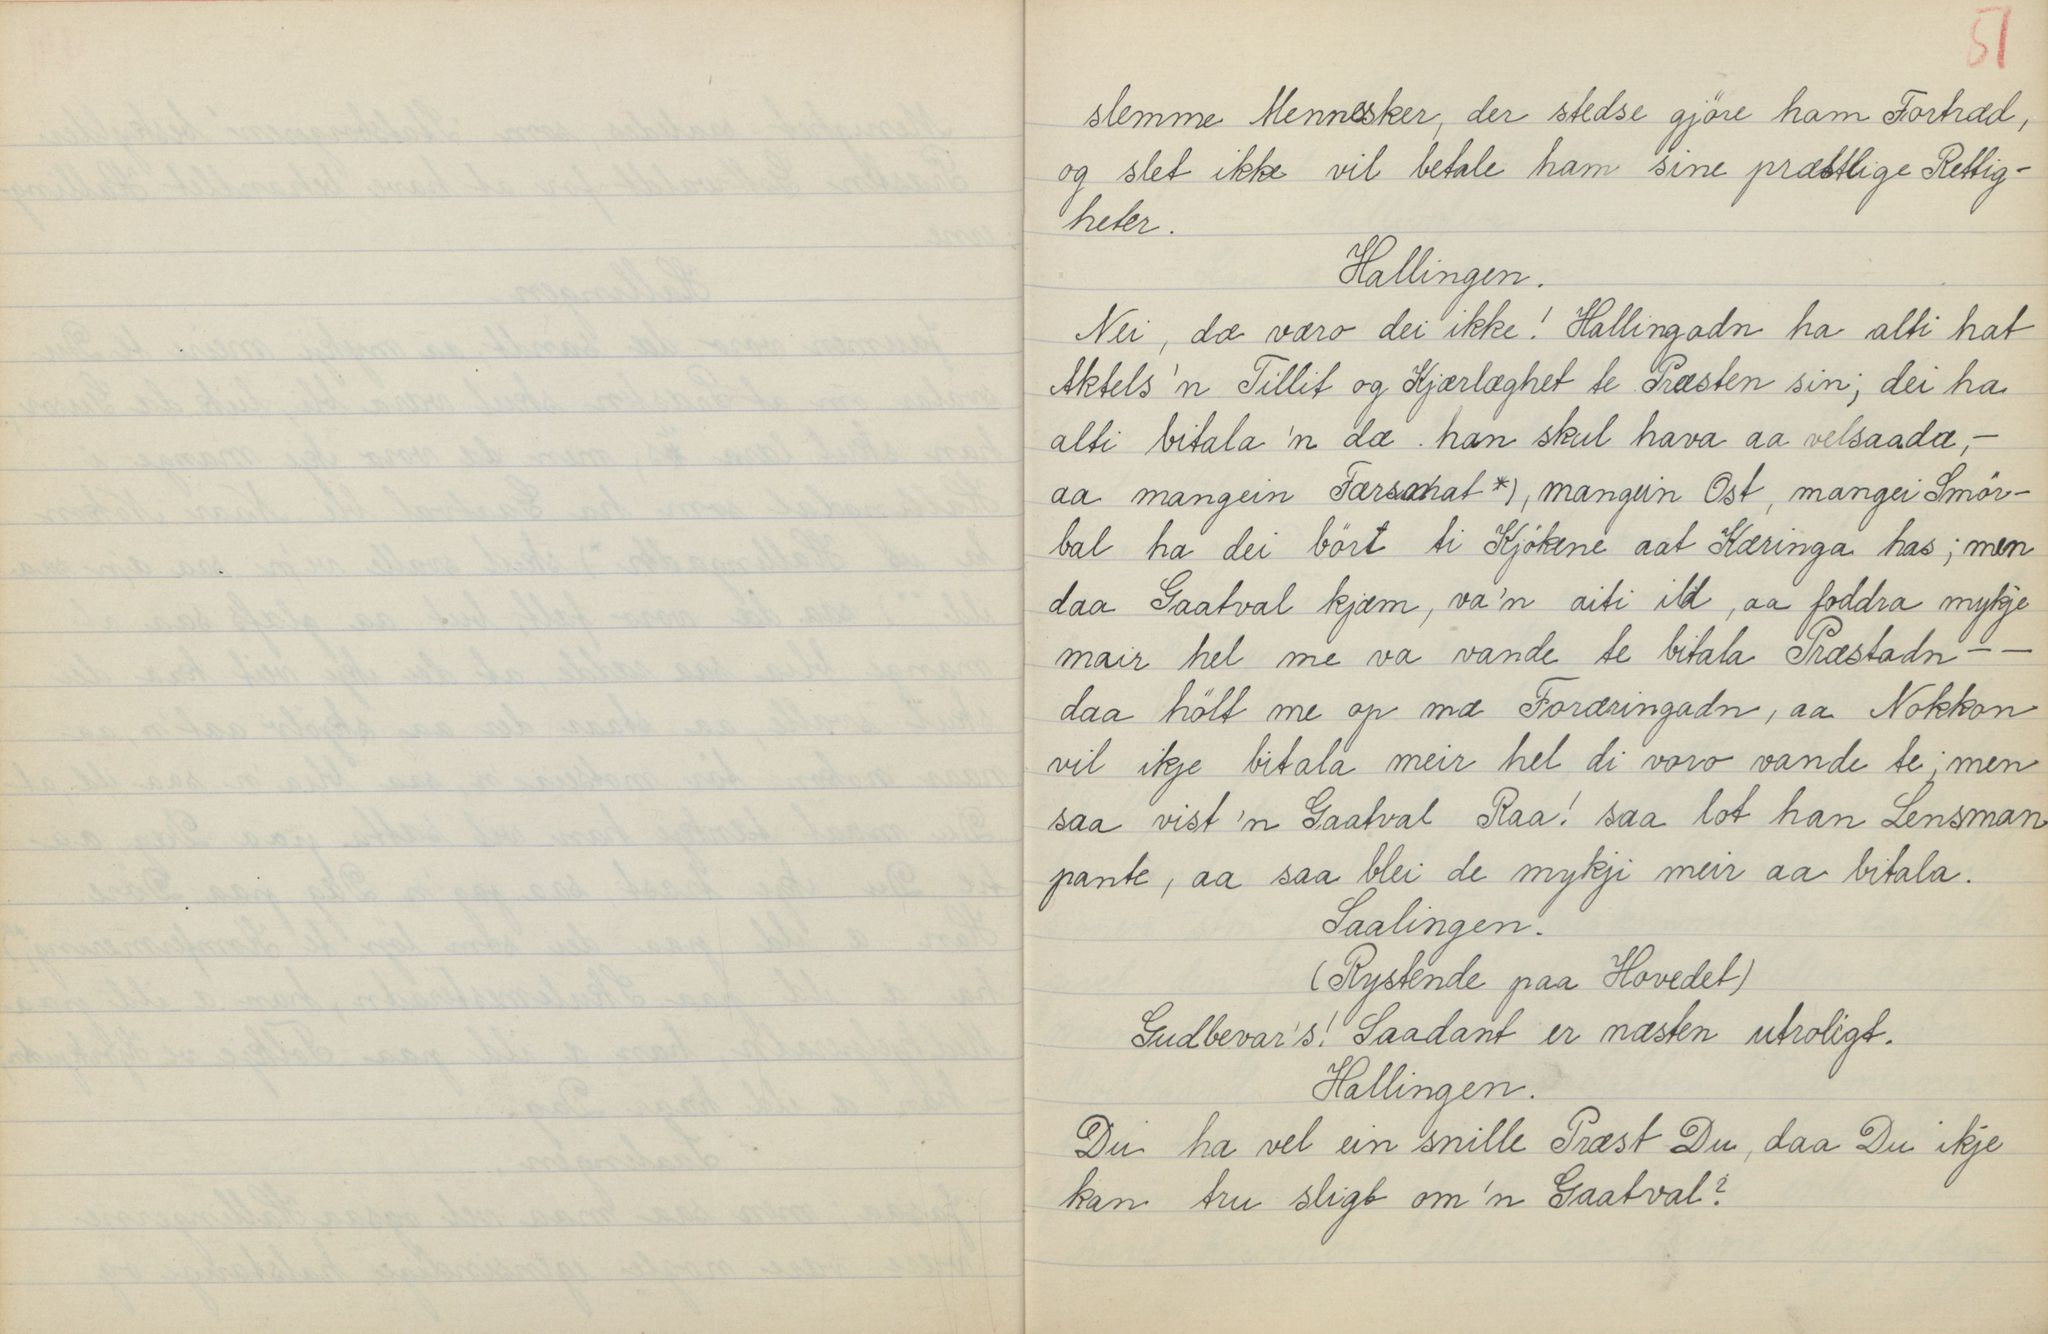 51
slemme Mennesker, der stedse gjöre ham Fortræd,
og slet ikke vil betale ham sine præstlige Rettig-
heter.
Hallingen.
Nei, dæ væro dei ikke! Hallingadn ha alti hat
Aktels'n Tillit og Kjærlæghet te Præsten sin; dei ha
alti bitala 'n dæ han skul hava aa velsaadæ,-
aa mangein Færsmat *), mangein Ost, mangei Smör-
bal ha dei bört ti Kjökene aat Kæringa has; men
daa Gaatval kjæm, va'n aiti ild, aa foddra mykje
mair hel me va vande te bitala Præstadn--
daa hölt me op mæ Foræringadn, aa Nokkon
vil ikje bitala meir hel di voro vande te; men
saa vist 'n Gaatval Raa! saa lot han Lensman
pante, aa saa blei de mykji meir aa bitala.
Saalingen.
(Rystende paa Hovedet)
Gudbevar's! Saadant er næsten utroligt.
Hallingen.
Du ha vel ein snille Præst Du, daa Du ikje
kan tru sligt om'n Gaatval?